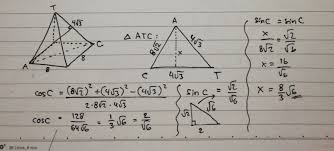 T
4√3
A
8
8
C
B
Δ ATC :
A
8√2
4√3
x
C
4√3
T
cos C = (8√2)² + (4√3)² - (4√3)²
2 · 8√2 · 4√3
cos C = 128 / 64√6 = 1/3 √6 = 2/√6
sin C = √2/√6
√2
√6
2
sin C = sin C
x / 8√2 = √2 / √6
x = 16 / √6
x = 8/3 √6